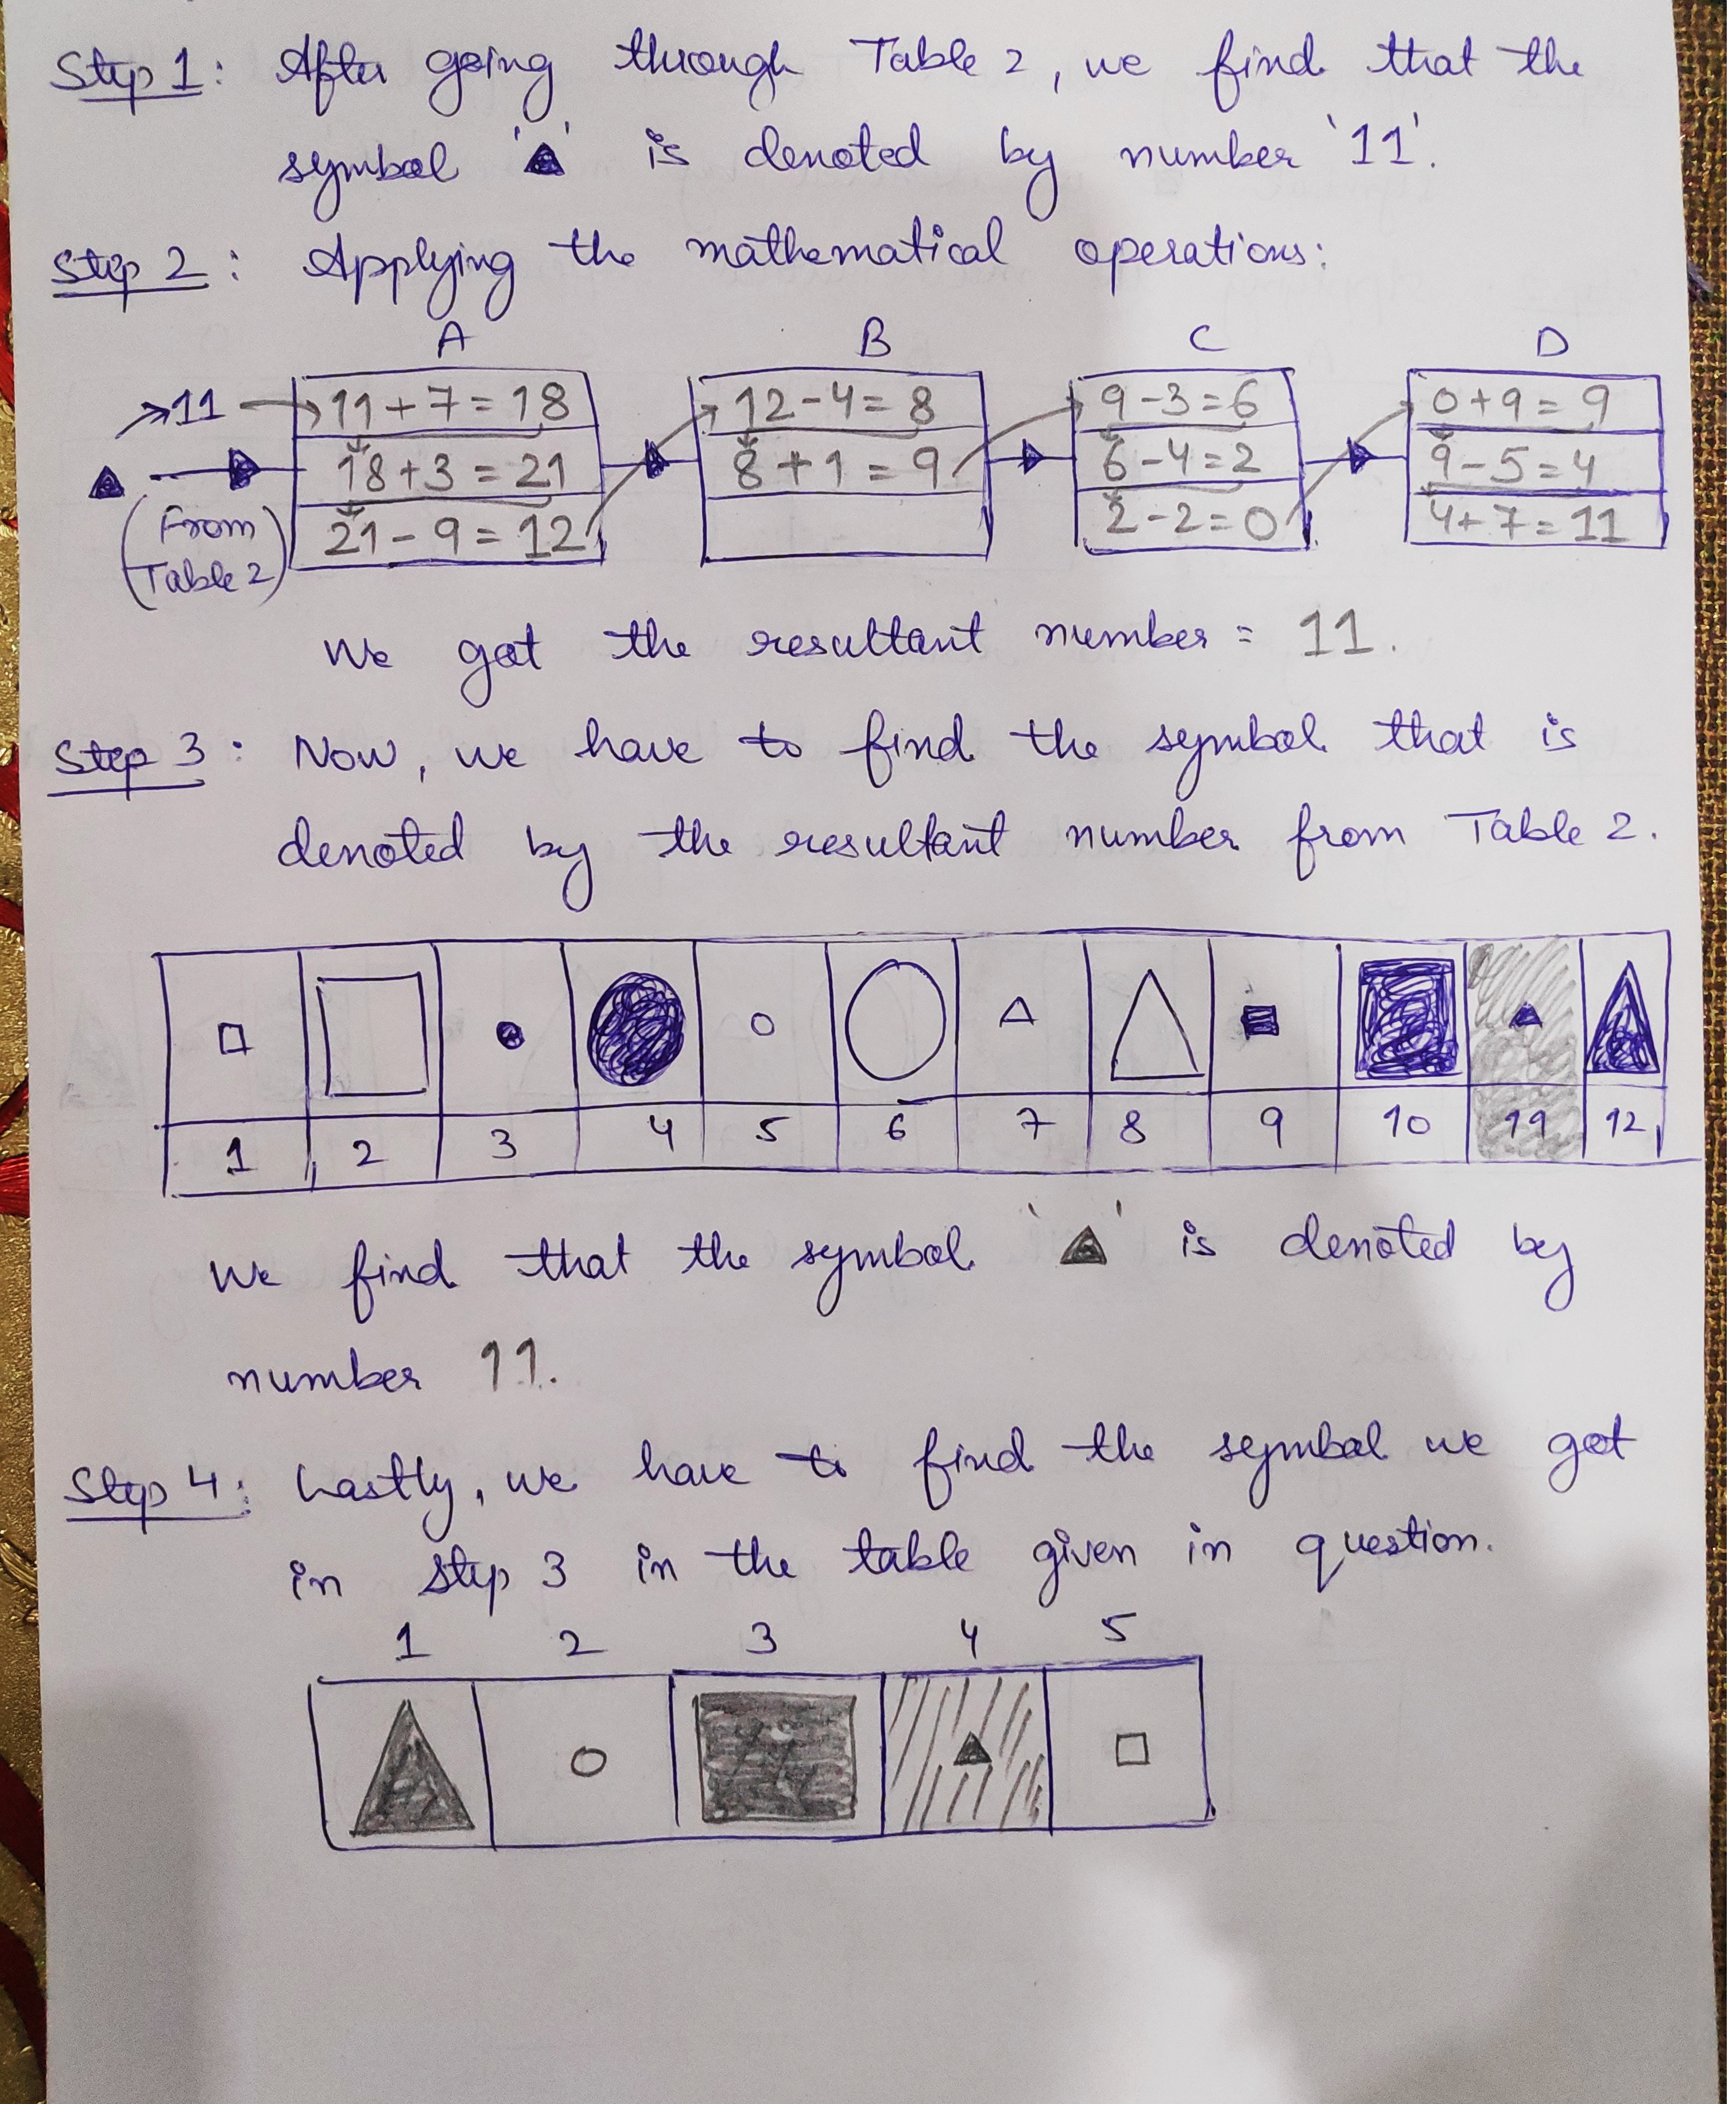 Step 1: After going through Table 2, we find that the
symbol '▲' is denoted by number '11'.
Step 2: Applying the mathematical operations:
A B C D
11 11+7=18 12-4=8 9-3=6 0+9=9
▲ 18+3=21 8+1=9 6-4=2 9-5=4
(From Table 2) 21-9=12 2-2=0 4+7=11
We got the resultant number = 11.
Step 3: Now, we have to find the symbol that is
denoted by the resultant number from Table 2.
1 2 3 4 5 6 7 8 9 10 11 12
We find that the symbol '▲' is denoted by
number 11.
Step 4: Lastly, we have to find the symbol we got
in step 3 in the table given in question.
1 2 3 4 5